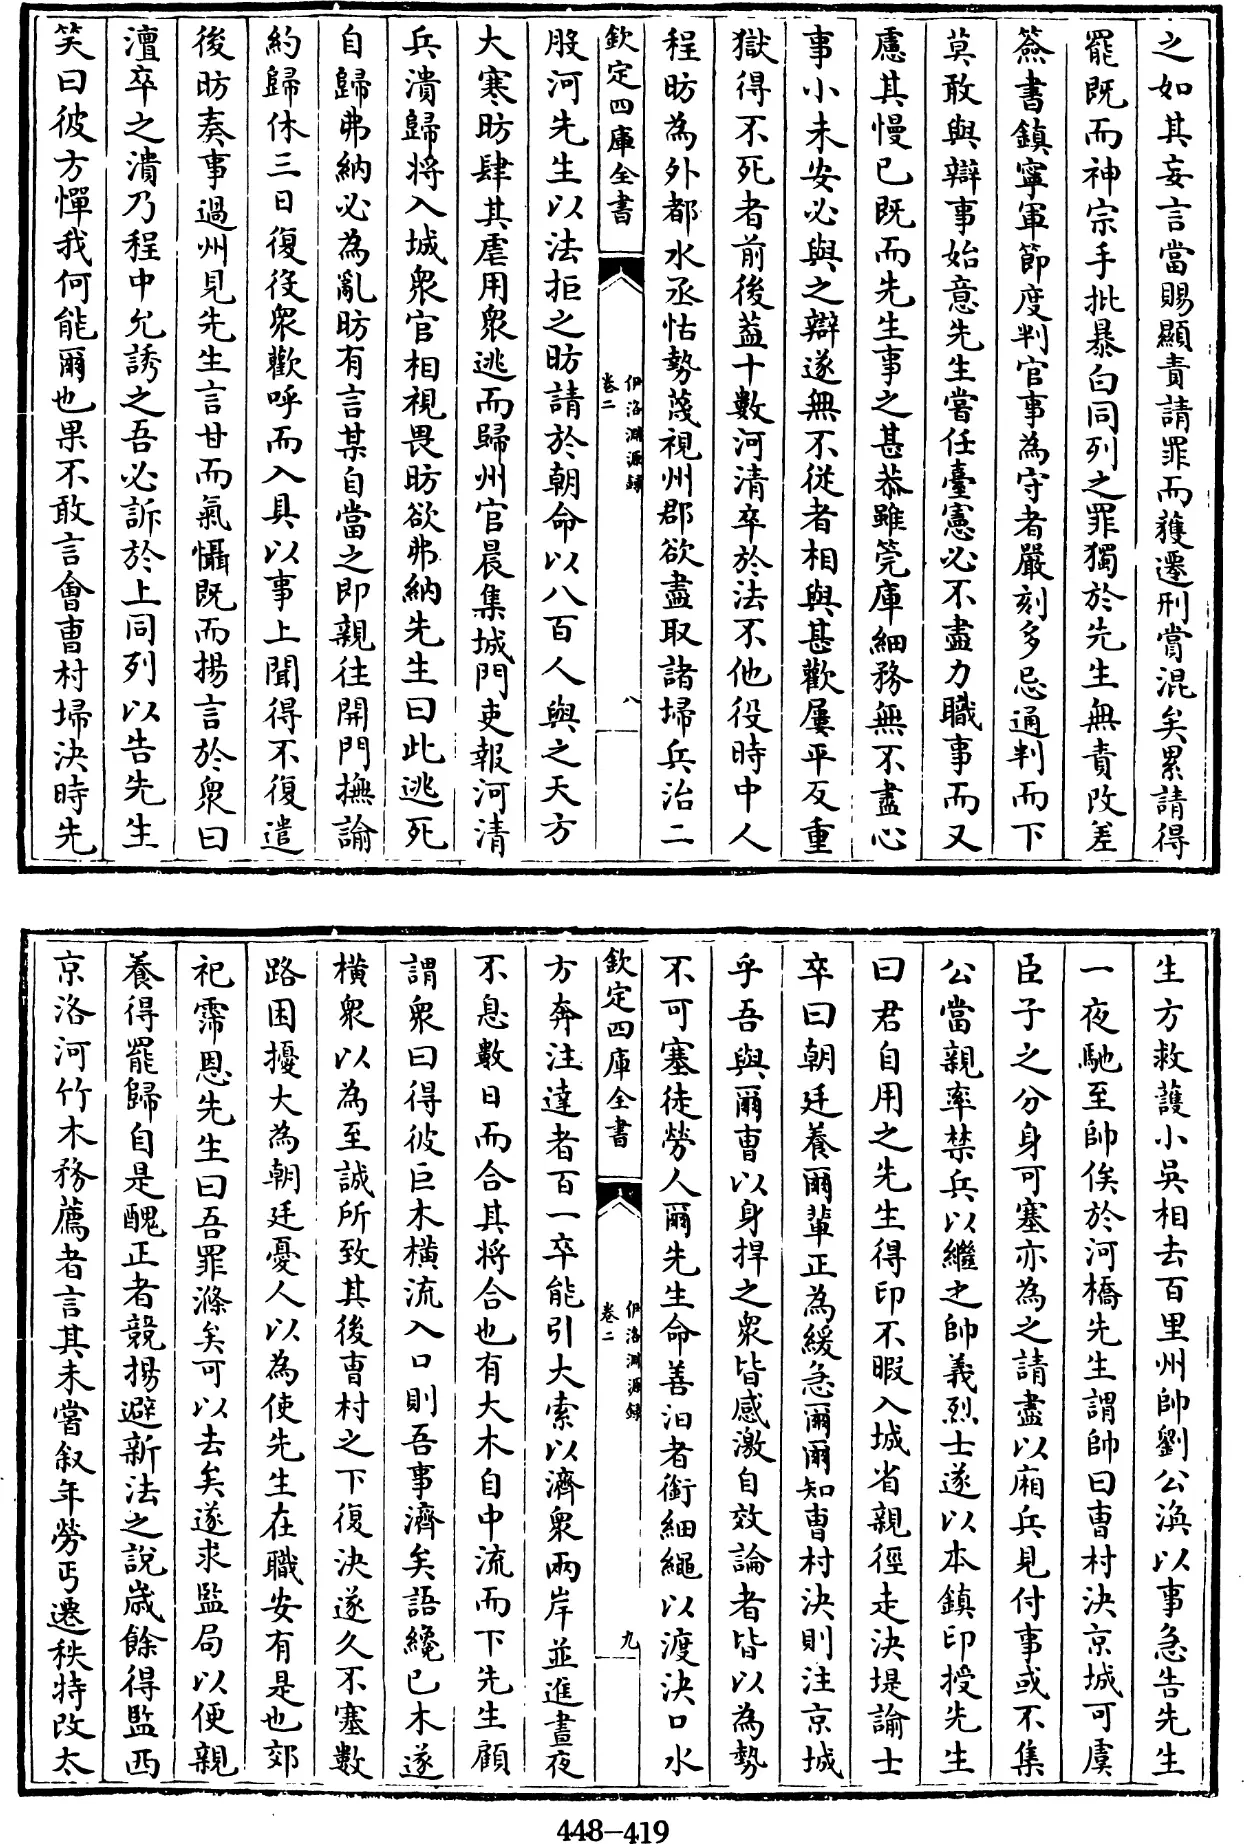 之如其妄言當賜顯責請罪而獲遷刑賞混矣累請得
罷既而神宗手批暴白同列之罪獨於先生無責改差
簽書鎮寧軍節度判官事為守者嚴刻多忌通判而下
莫敢與辯事始意先生嘗任臺憲必不盡力職事而又
慮其慢已既而先生事之甚恭雖筦庫細務無不盡心
事小未安必與之辯遂無不従者相與甚歡屢平反重
獄得不死者前後葢十數河清卒於法不他役時中人
程昉為外都水丞怙勢蔑視州郡欲盡取諸埽兵治二
欽定四庫全書
伊洛淵源録
卷二
八
股河先生以法拒之昉請於朝命以八百人與之天方
大寒昉肆其虐用衆逃而歸州官晨集城門吏報河清
兵潰歸將入城衆官相視畏昉欲弗納先生曰此逃死
自歸弗納必為亂昉有言某自當之即親往開門撫諭
約歸休三日復役衆歡呼而入具以事上聞得不復遣
後昉奏事過州見先生言甘而氣懾既而揚言於衆曰
澶卒之潰乃程中允誘之吾必訴於上同列以告先生
笑曰彼方憚我何能爾也果不敢言會曹村埽決時先
生方救䕶小吳相去百里州帥劉公渙以事急告先生
一夜馳至帥俟於河橋先生謂帥曰曹村決京城可虞
臣子之分身可塞亦為之請盡以廂兵見付事或不集
公當親率禁兵以繼之帥義烈士遂以本鎮印授先生
曰君自用之先生得印不暇入城省親徑走決堤諭士
卒曰朝廷養爾輩正為緩急爾爾知曹村決則注京城
乎吾與爾曹以身捍之衆皆感激自效論者皆以為勢
不可塞徒勞人爾先生命善泅者銜細繩以渡決口水
欽定四庫全書
伊洛淵源録
卷二
九
方奔注達者百一卒能引大索以濟衆兩岸並進晝夜
不息數日而合其將合也有大木自中流而下先生顧
謂衆曰得彼巨木橫流入口則吾事濟矣語纔已木遂
橫衆以為至誠所致其後曹村之下復決遂久不塞數
路困擾大為朝廷憂人以為使先生在職安有是也郊
祀霈恩先生曰吾罪滌矣可以去矣遂求監局以便親
養得罷歸自是醜正者競揚避新法之說歲餘得監西
京洛河竹木務薦者言其未嘗叙年勞丐遷秩特改太
448-419